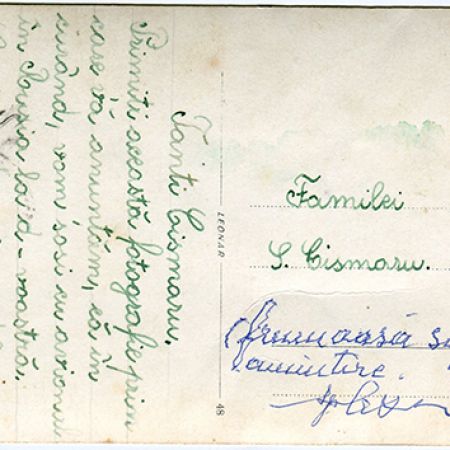 Tanti Cismaru.
Primiti această fotografie prin
care vă anuntăm, că în
curănd, vom, sosi cu avionul
în Rusia la d-voastră.
LEONAR
48
Familei
S. Cismaru.
Frumoasă
amintire.